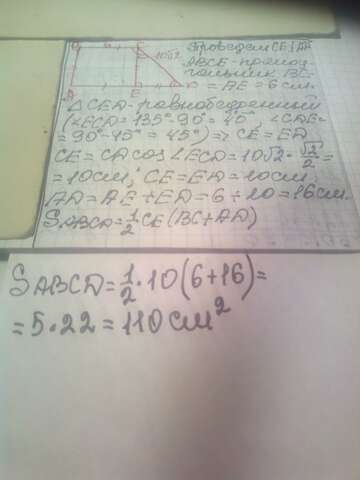 B 6 C
10√2
A E D
Проведем CE ⊥ AD
ABCE - прямоу-
гольник BC=
= AE = 6 см.
△CED - равнобедренный
(∠ECD = 135°-90° = 45°, ∠CDE=
= 90°-45° = 45°) => CE = ED
CE = CD cos∠ECD = 10√2 · √2/2 =
= 10 см; CE = ED = 10 см.
AD = AE + ED = 6 + 10 = 16 см.
SABCD = 1/2 CE (BC + AD)
SABCD = 1/2 · 10 (6+16) =
= 5 · 22 = 110 см²